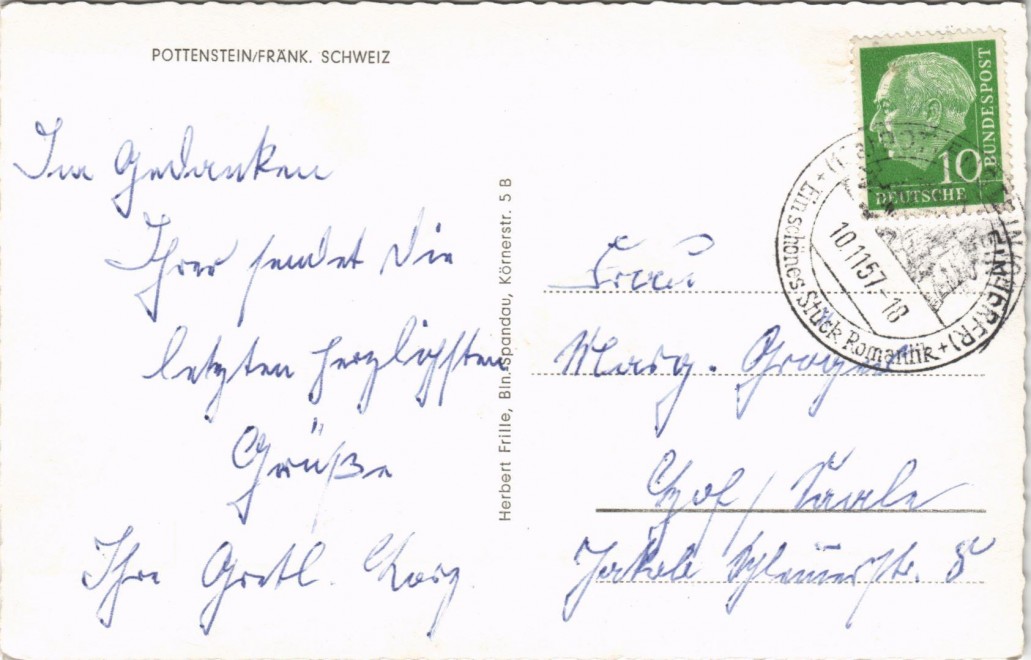 POTTENSTEIN/FRÄNK. SCHWEIZ
Im Gedanken
Ihrer sendet die
letzten herzlichsten
Grüße
Ihre Gretl.
Herbert Frille, Bln.-Spandau, Körnerstr. 5 B
10 BUNDESPOST
DEUTSCHE
+ Ein schönes Stück Romantik +
10.11.57-18
Frau
Marg.
Hof / Saale